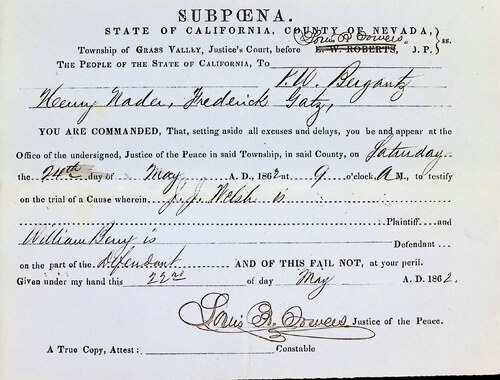 SUBPŒNA.
STATE OF CALIFORNIA, COUNTY OF NEVADA, } ss.
Louis B. Sowers
Township of Grass Valley, Justice's Court, before E. W. ROBERTS, J. P.
The People of the State of California, To
P. W. Bergantz
Henry Nader, Frederick Gatz,
YOU ARE COMMANDED, That, setting aside all excuses and delays, you be and appear at the
Office of the undersigned, Justice of the Peace in said Township, in said County, on Saturday
the 24th day of May A. D., 1862 at 9 o'clock, A M., to testify
on the trial of a Cause wherein J. J. Welsh is
Plaintiff and
William Berry is Defendant
on the part of the Defendant AND OF THIS FAIL NOT, at your peril.
Given under my hand this 22nd of day May A. D. 1862.
Louis B. Sowers Justice of the Peace.
A True Copy, Attest: Constable